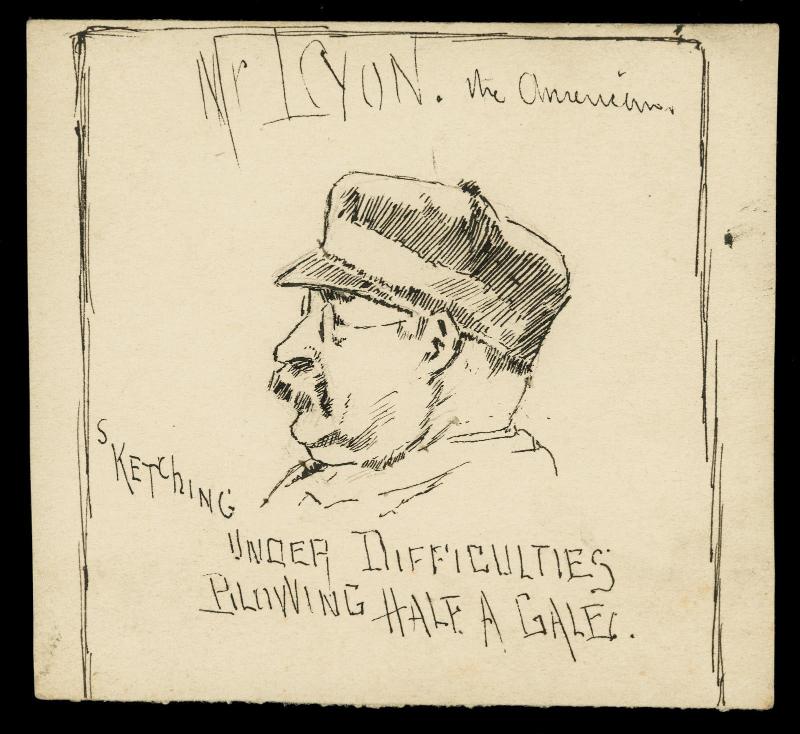 Mr LYON. the American.
SKETChING
UNDER DIFFICULTIES
BLOWING HALF A GALE.